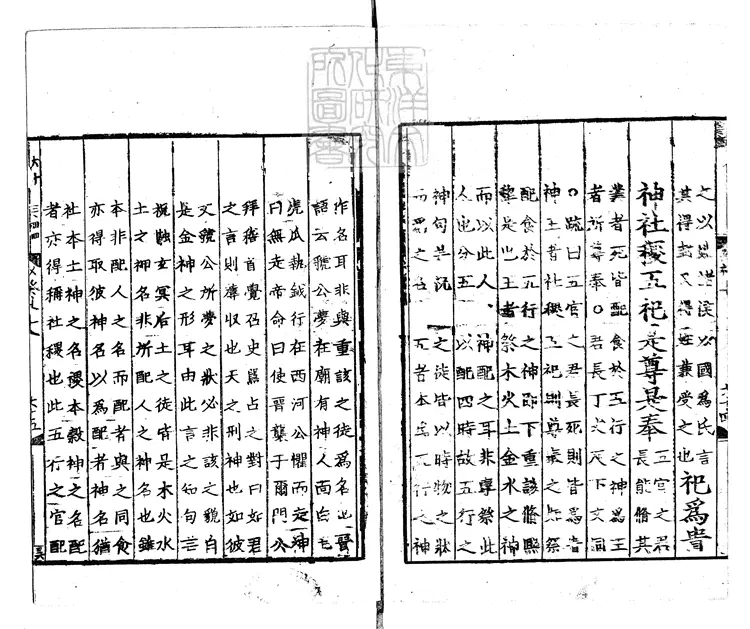 之以姓諸侯以國爲氏言
其得封又得姓兼受之也
祀爲貴
神社稷五祀是尊是奉
五官之君
長能脩其
業者死皆配食於五行之神爲王
者所尊奉○君長丁丈反下文同
○疏曰五官之君長死則皆爲貴
神王者社稷五祀則尊奉之如祭
配食於五行之神即下重該脩熙
犂是也王者祭木火土金水之神
而以此人 神配之耳非專祭此
人也分五 以配四時故五行之
神句芒祝 之徒皆以時物之狀
而爲之名 五者本爲五行之神
作名耳非與重該之徒爲名也晉
語云虢公夢在廟有神人面白毛
虎爪執鉞行在西河公懼而走神
曰無走帝命曰使晉襲于爾門公
拜稽首覺召史嚚占之對曰如君
之言則蓐收也天之刑神也如彼
文虢公所夢之狀必非該之貌自
是金神之形耳由此言之知句芒
祝融玄冥后土之徒皆是木火水
土之神名非所配人之神名也雖
本非配人之名而配者與之同食
亦得取彼神名以爲配者神名猶
社本土神之名稷本穀神之名配
者亦得稱社稷也此五行之官配